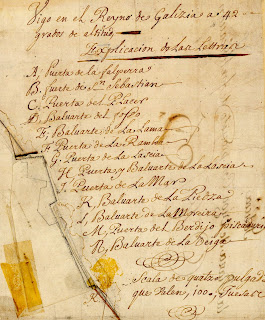 Vigo en el Reyno de Galizia a 42
grados de altitud
Explicacion de Las Lettras
A, Puerta de la falperra
B, fuerte de Sn Sebastian
C, Puerta del Placer
D, Baluarte del fosso
E, Baluarte de La Lama
F Puerta de La Rambla
G, Puerta de La Laxe
H Puerta y Baluarte de La Laxe
I, Puerta de La Mar
K, Baluarte de La Piedra
L, Baluarte de La
M, Puerta del Berdijo
N, Baluarte de La
Scala de quatro pulgad
que Valen, 100, Tuesas